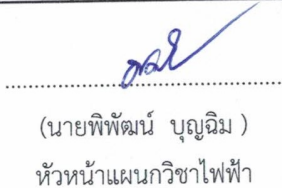 (นายพิพัฒน์ บุญฉิม )
หัวหน้าแผนกวิชาไฟฟ้า